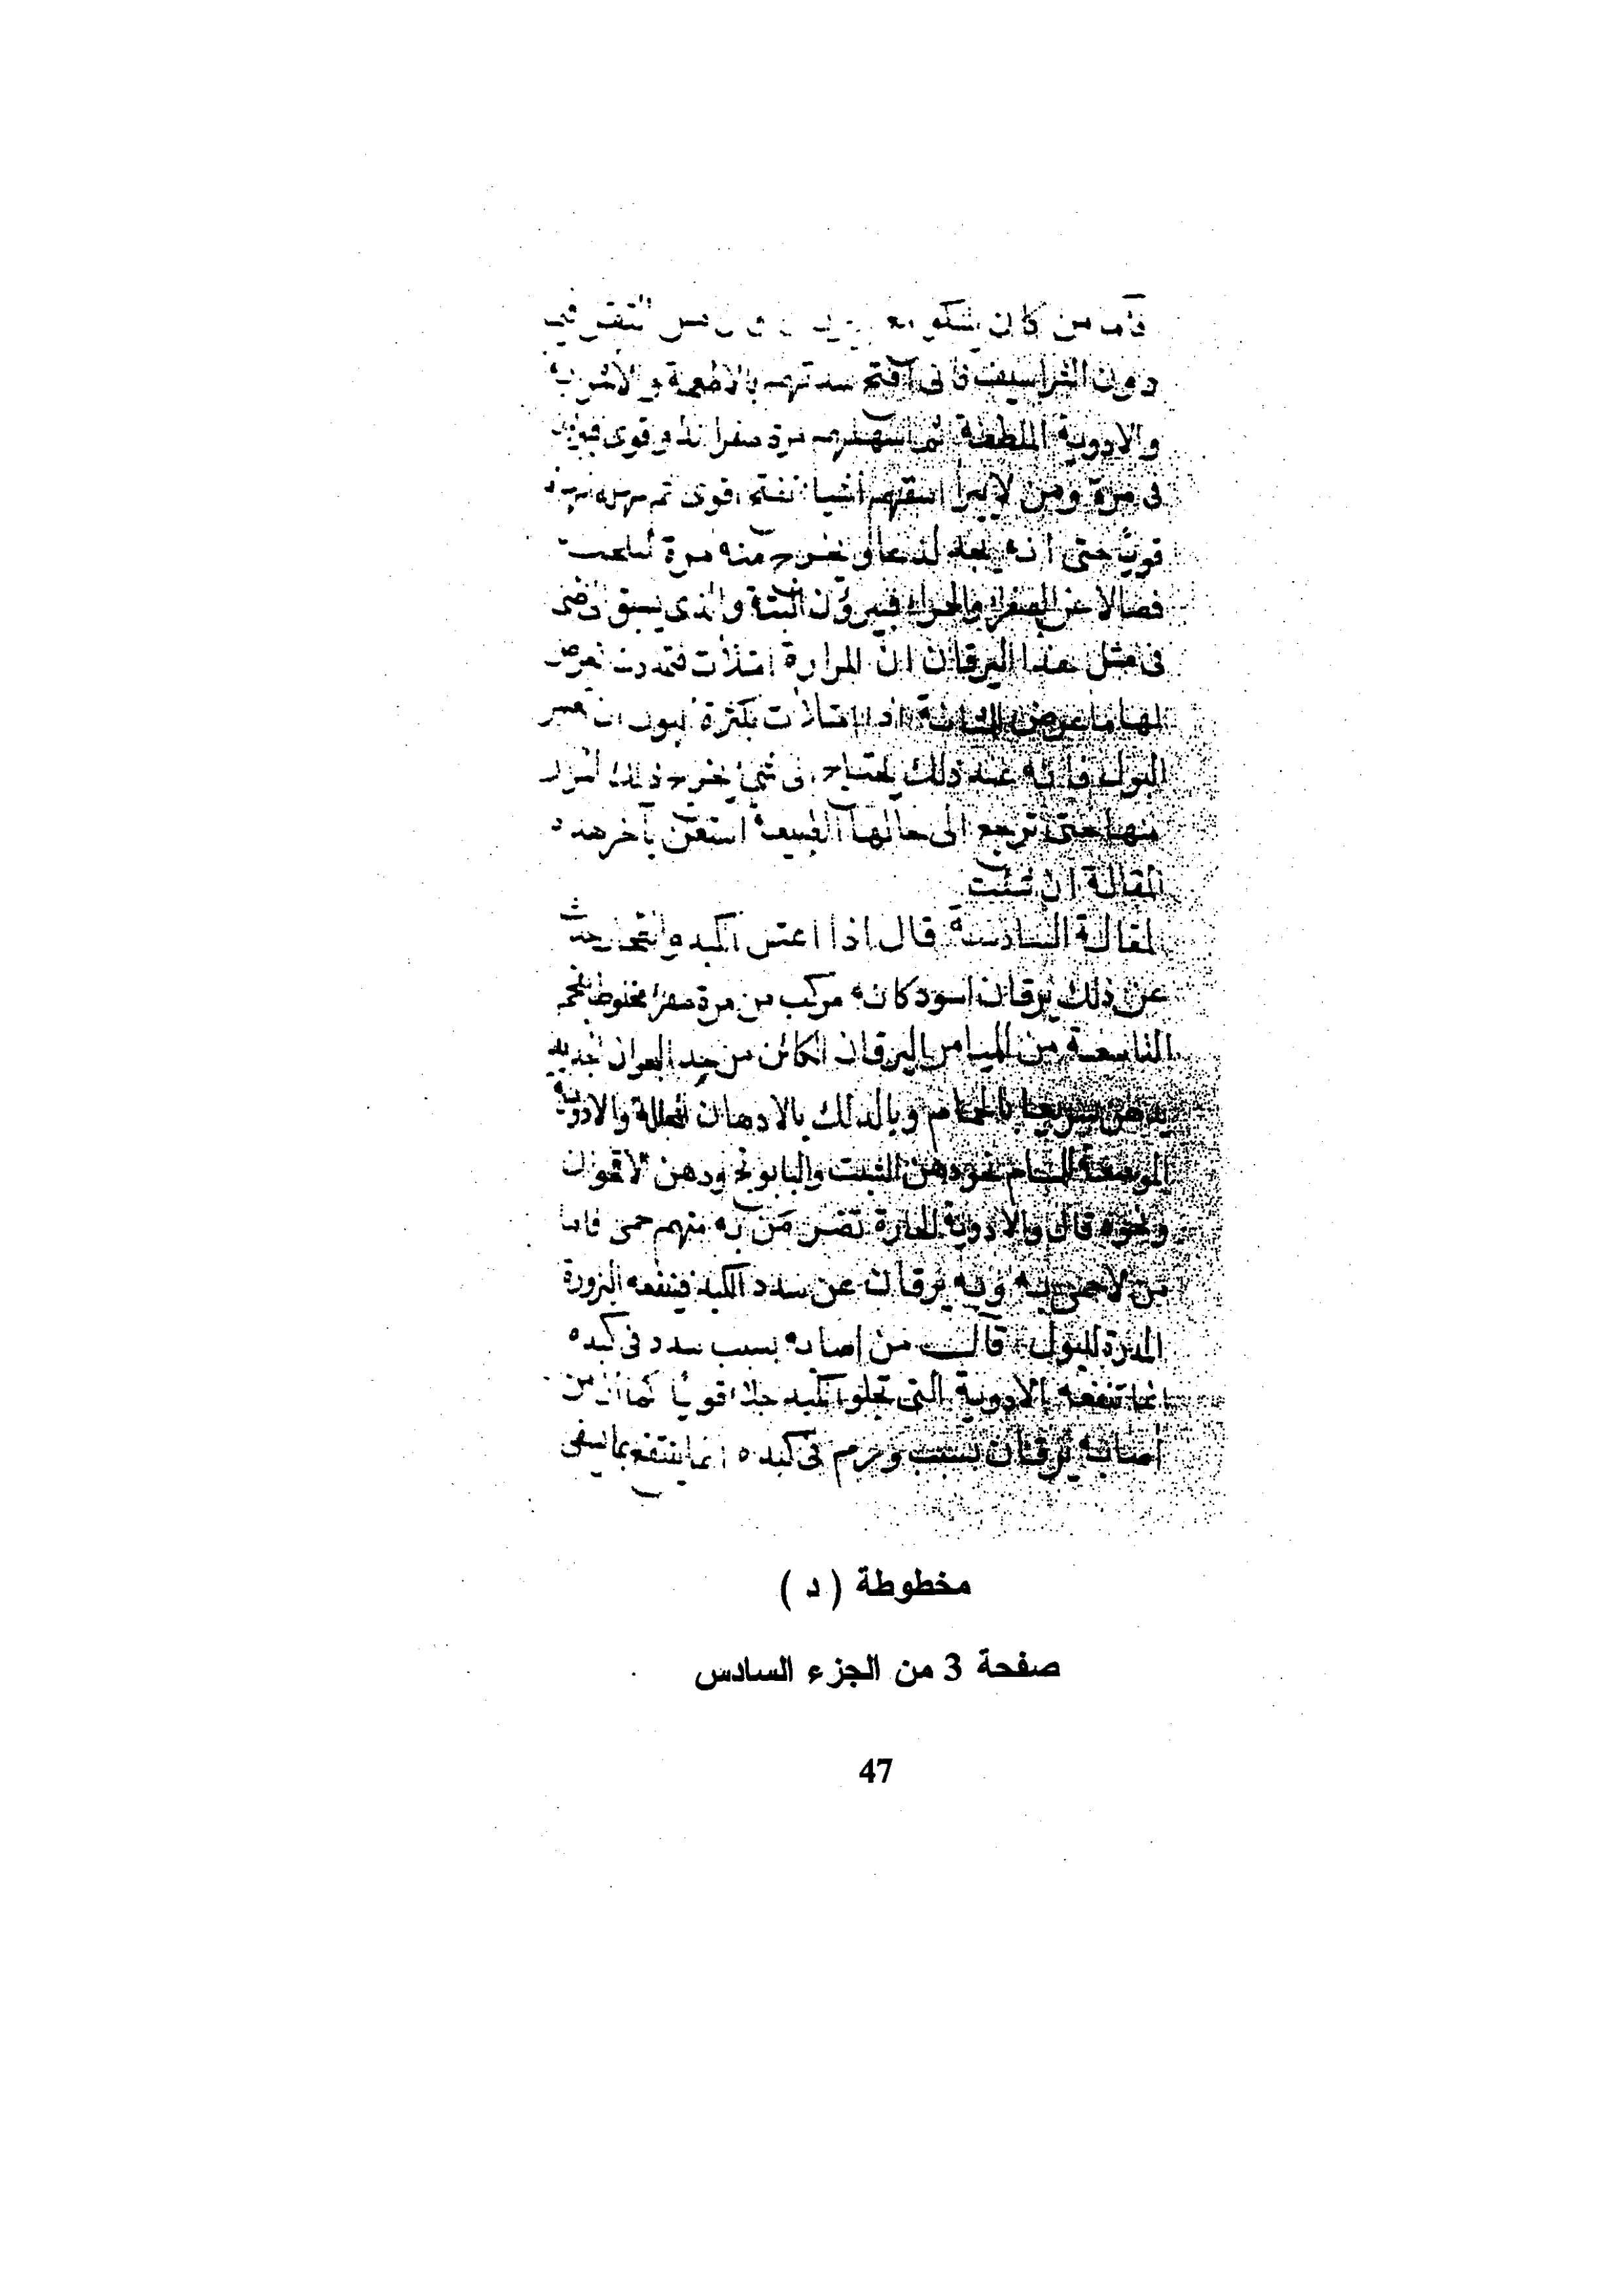 فأما من كان يشكو
دون الشراسيف فانى افتح سدتهم بالاطعمة والاشربة
والادوية الملطفة ثم اسهلهم مرة صفرا بدواء قوى
فى مرة ومن لا يبرا اسقيهم اشيا تفتح اقوى ثم
قويا حتى انه يجد لذعا و يخرج منه مرة
فضلا عن الصفرا والحمرا فيبرؤن البتة والذى يسبق
فى مثل هذا اليرقان ان المرارة امتلات فتمددت فعرض
لها ما عرض للمثانة اذا امتلات بكثرة البول ان تعسر
البول فانه عند ذلك يحتاج الى شى يخرج ذلك المرار
منها حتى ترجع الى حالها الطبيعة استعن بآخر هذه
المقالة ان شئت
المقالة السادسة قال اذا اعتل الكبد والطحال حدث
عن ذلك يرقان اسود كانه مركب من مرة صفرا مخلوط بفحم
التاسعة من الميامر اليرقان الكائن من جيد البحران
سريعا بالحمام وبالدلك بالادهان المحللة والادوية
الموسعة للمسام نحو دهن الشبت والبابونج ودهن الاقحوان
ونحوه قال والادوية الحارة تضر من به منهم حمى فاما
من لا حمى به وبه يرقان عن سدد الكبد فينفعه البزورة
المدرة للبول قال من اصابه بسبب سدد فى كبده
انما تنفعه الادوية التى تجلو الكبد جلاء قويا كما ان من
اصابه يرقان بسبب ورم فى كبده انما ينتفع بما يشفى
مخطوطة ( د )
صفحة 3 من الجزء السادس
47